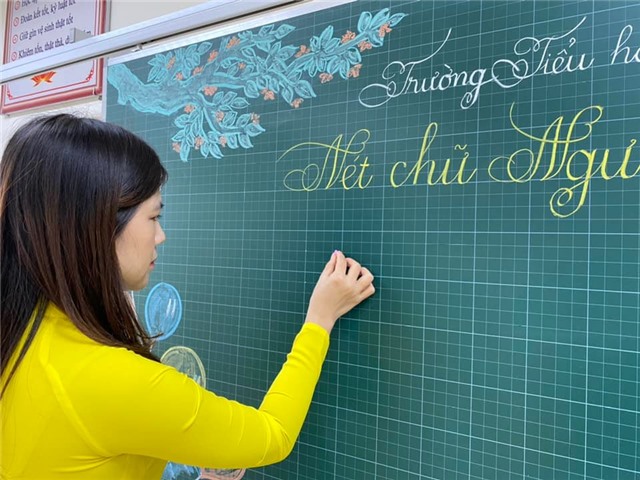 Đoàn kết tốt, kỷ luật tốt
Giữ gìn vệ sinh thật tốt
Khiêm tốn, thật thà,
Trường Tiểu họ
Nét chữ Ngư